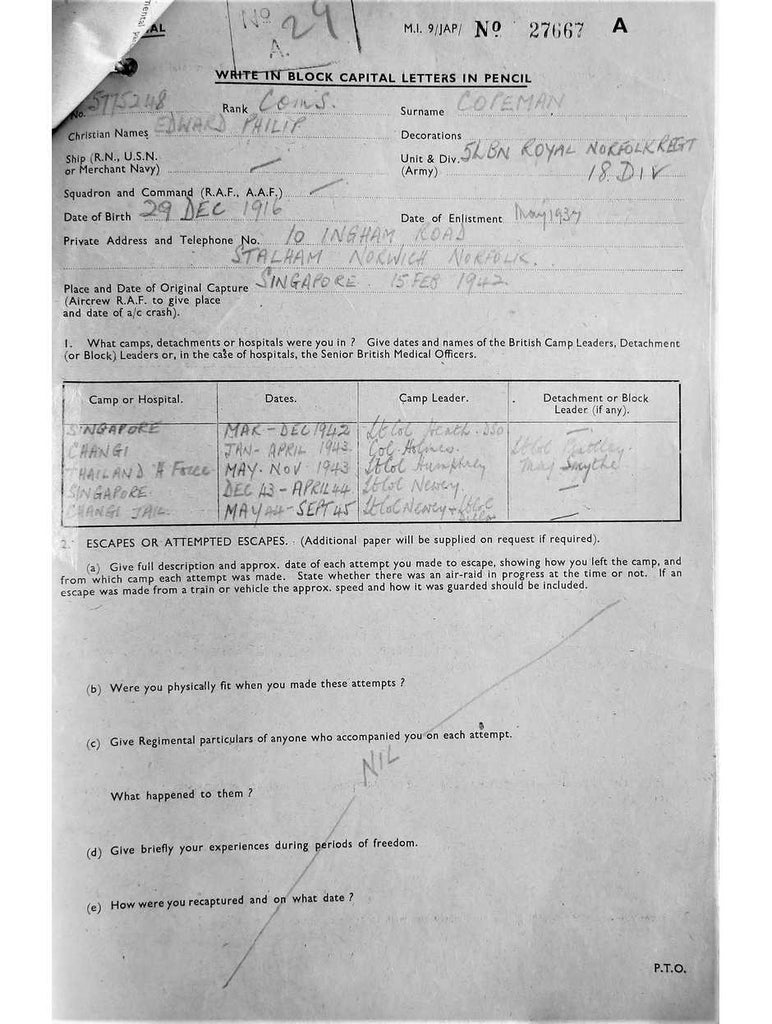 mental pa
AL
Nº 29
A.
M.I. 9/JAP/ Nº 27667 A
WRITE IN BLOCK CAPITAL LETTERS IN PENCIL
No. 5775248 Rank Surname COPEMAN
Christian Names EDWARD PHILIP Decorations
Ship (R.N., U.S.N. or Merchant Navy) — Unit & Div. (Army) 5th BN ROYAL NORFOLK REGT
18 DIV
Squadron and Command (R.A.F., A.A.F.) —
Date of Birth 29 DEC 1916 Date of Enlistment May 1937
Private Address and Telephone No. 10 INGHAM ROAD
STALHAM NORWICH NORFOLK.
Place and Date of Original Capture SINGAPORE. 15 FEB 1942
(Aircrew R.A.F. to give place
and date of a/c crash).
1. What camps, detachments or hospitals were you in ? Give dates and names of the British Camp Leaders, Detachment
(or Block) Leaders or, in the case of hospitals, the Senior British Medical Officers.
Camp or Hospital. Dates. Camp Leader. Detachment or Block Leader (if any).
SINGAPORE MAR - DEC 1942 Lt Col Heath. DSO —
CHANGI JAN - APRIL 1943 Col. Holmes. Lt Col
THAILAND Force MAY. NOV 1943 Lt Col Humphrey Maj Smythe
SINGAPORE. DEC 43 - APRIL 44 Lt Col Newey —
CHANGI JAIL. MAY 44 - SEPT 45 Lt Col Newey + Lt Col —
2. ESCAPES OR ATTEMPTED ESCAPES. (Additional paper will be supplied on request if required).
(a) Give full description and approx. date of each attempt you made to escape, showing how you left the camp, and
from which camp each attempt was made. State whether there was an air-raid in progress at the time or not. If an
escape was made from a train or vehicle the approx. speed and how it was guarded should be included.
(b) Were you physically fit when you made these attempts ?
(c) Give Regimental particulars of anyone who accompanied you on each attempt.
NIL
What happened to them ?
(d) Give briefly your experiences during periods of freedom.
(e) How were you recaptured and on what date ?
P.T.O.